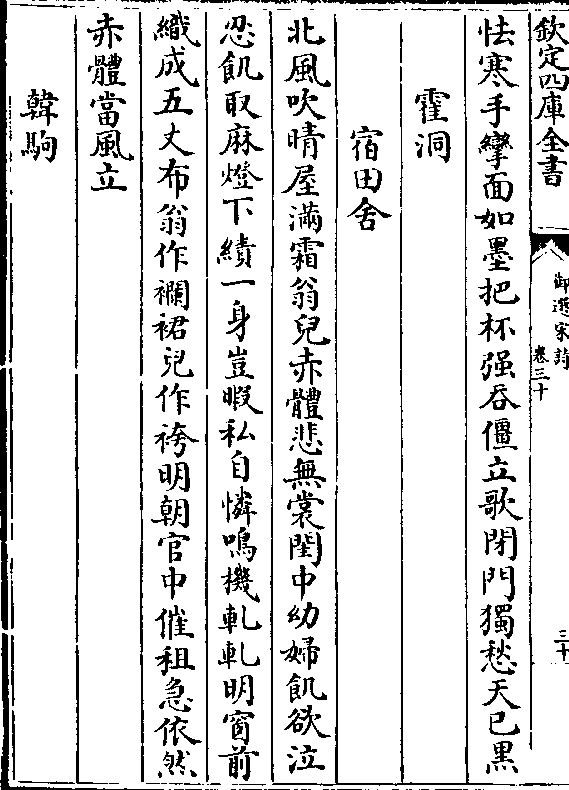 欽定四庫全書
御選宋詩
卷三十
三十
怯寒手攣面如墨把杯强吞僵立歌閉門獨愁天已黑
霍洞
宿田舍
北風吹晴屋滿霜翁兒赤體悲無裳閨中幼婦飢欲泣
忍飢取麻燈下績一身豈暇私自憐鳴機軋軋明窗前
織成五丈布翁作襴裙兒作袴明朝官中催租急依然
赤體當風立
韓駒